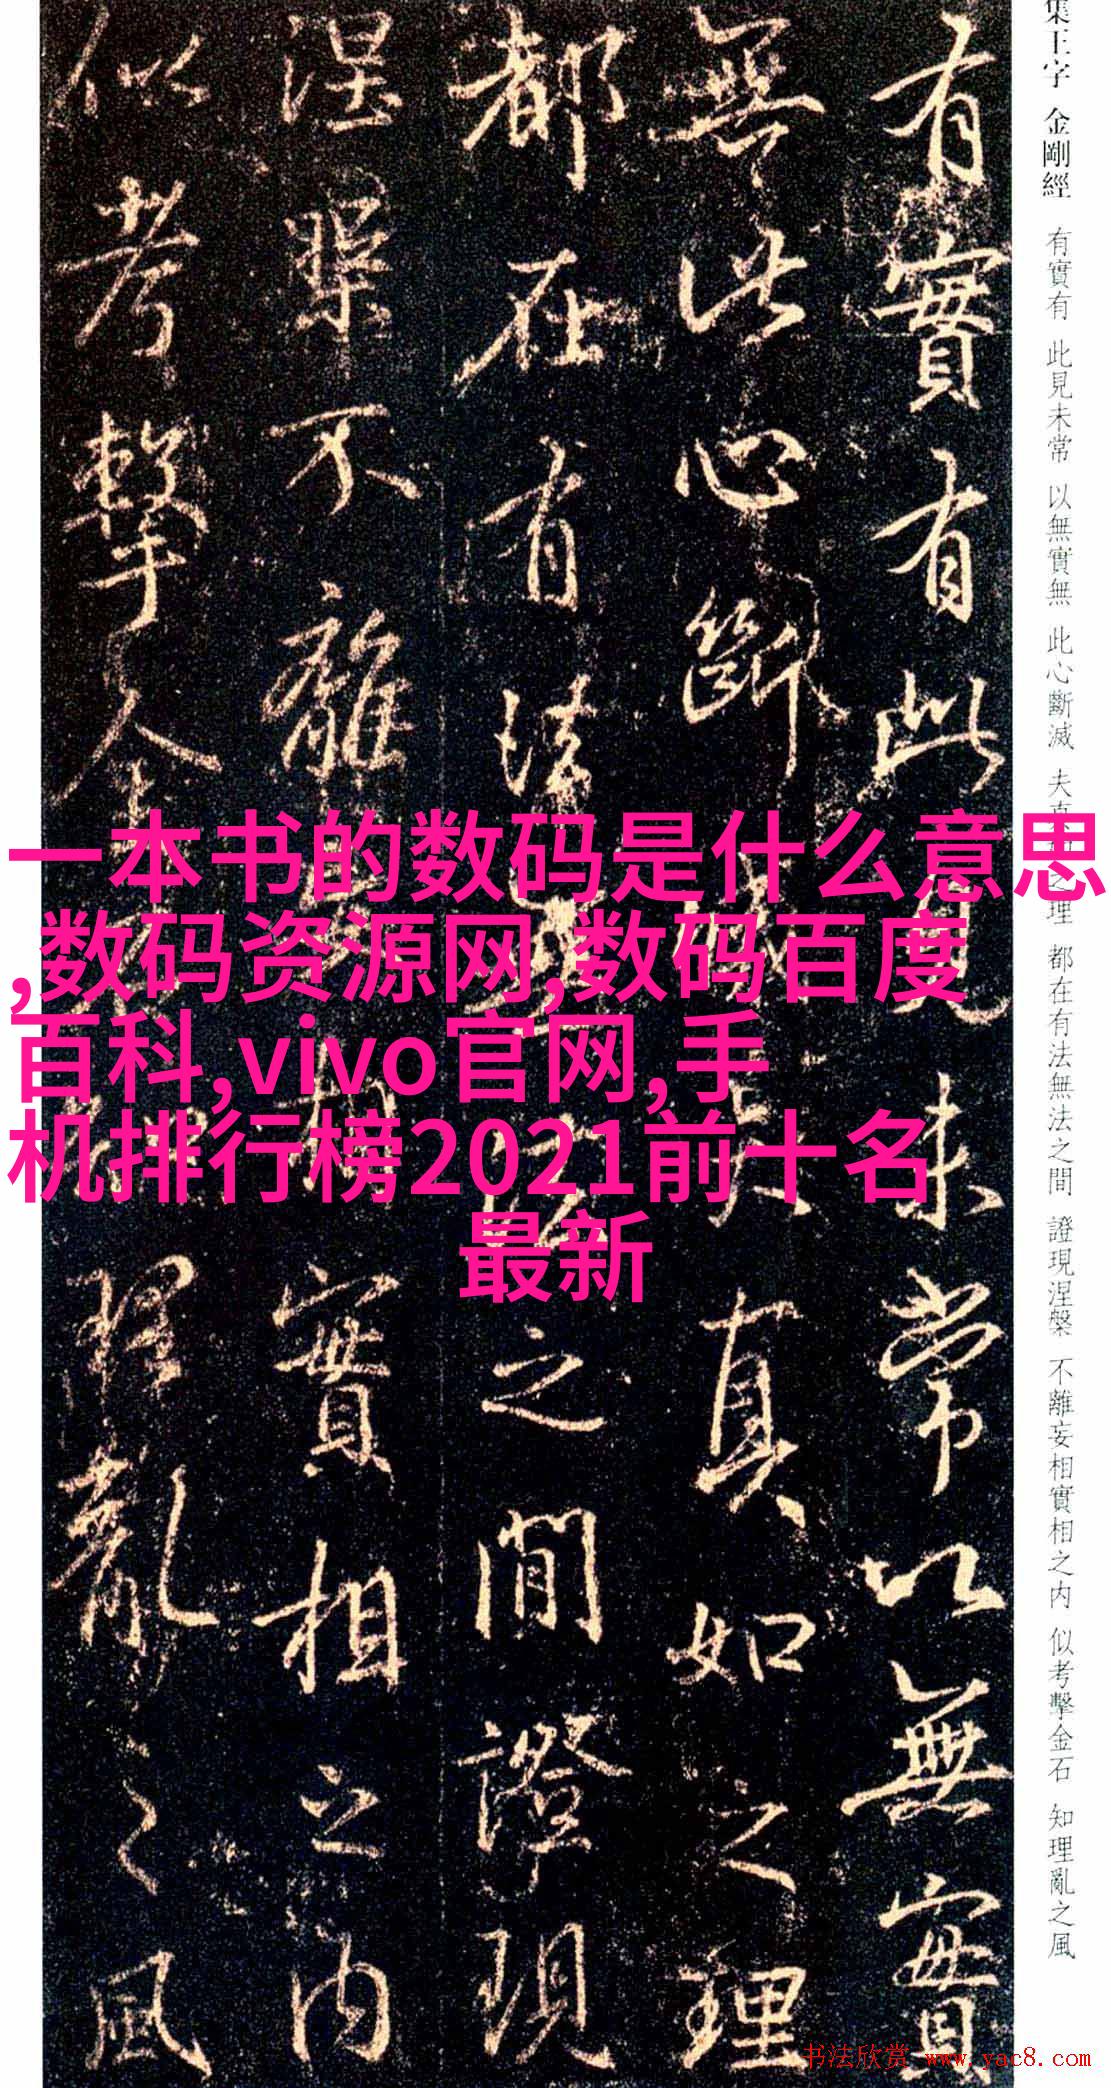 集王字 金剛經 有實有 此見未常 以無實無 此心斷滅 夫真如之理 都在有法無法之間 證現涅槃 不離妄相實相之內 似考擊金石 知理亂之風
有實有此見未常以無實
無此心斷滅夫真如之理
都在有法無法之間證現
涅槃不離妄相實相之內
似考擊金石知理亂之風
一本书的数码是什么意思
,数码资源网,数码百度
百科,vivo官网,手
机排行榜2021前十名
最新
书法欣赏 www.yac8.com